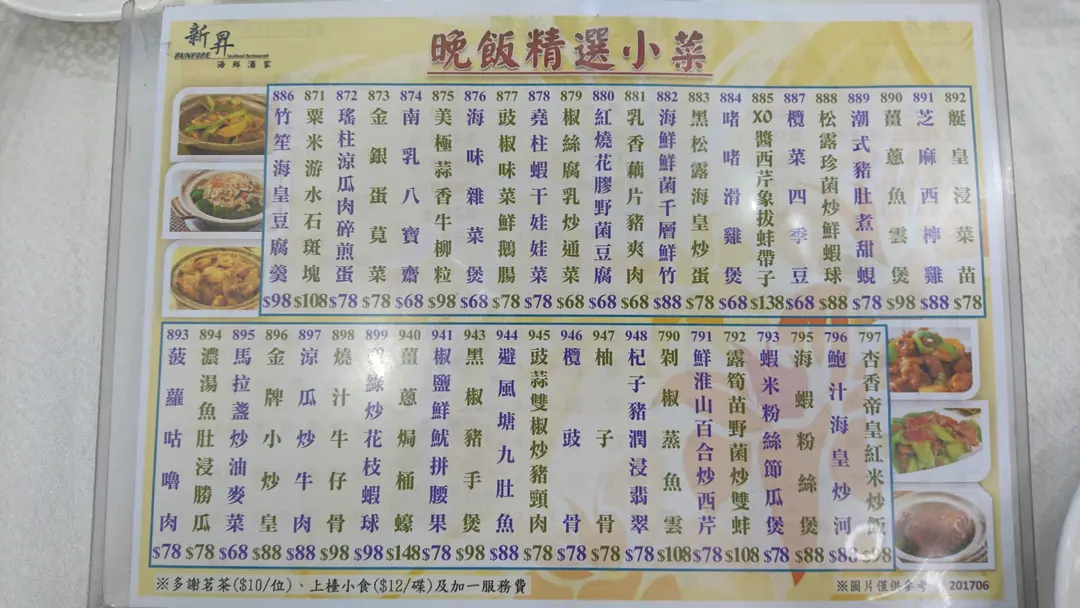 新昇
SUNRISE
seafood restaurant
海鮮酒家
晚飯精選小菜
886 竹笙海皇豆腐羹 $98
871 粟米游水石斑塊 $108
872 瑤柱涼瓜肉碎煎蛋 $78
873 金銀蛋莧菜 $78
874 南乳八寶齋 $68
875 美極蒜香牛柳粒 $98
876 海味雜菜煲 $68
877 豉椒味菜鮮鵝腸 $78
878 堯柱蝦干娃娃菜 $78
879 椒絲腐乳炒通菜 $68
880 紅燒花膠野菌豆腐 $68
881 乳香藕片豬爽肉 $68
882 海鮮鮮菌千層鮮竹 $88
883 黑松露海皇炒蛋 $78
884 啫啫滑雞煲 $68
885 XO醬西芹象拔蚌帶子 $138
887 欖菜四季豆 $68
888 松露珍菌炒鮮蝦球 $88
889 潮式豬肚煮甜蜆 $78
890 薑蔥魚雲煲 $98
891 芝麻西檸雞 $88
892 艇皇浸菜苗 $78
893 菠蘿咕嚕肉 $78
894 濃湯魚肚浸勝瓜 $78
895 馬拉盞炒油麥菜 $68
896 金牌小炒皇 $88
897 涼瓜炒牛肉 $88
898 燒汁牛仔骨 $98
899 絲炒花枝蝦球 $98
940 薑蔥焗桶蠔 $148
941 椒鹽鮮魷拼腰果 $78
943 黑椒豬手煲 $98
944 避風塘九肚魚 $88
945 豉蒜雙椒炒豬頸肉 $78
946 欖豉骨 $78
947 柚子骨 $78
948 杞子豬潤浸翡翠 $78
790 剁椒蒸魚雲 $108
791 鮮淮山百合炒西芹 $78
792 露筍苗野菌炒雙蚌 $108
793 蝦米粉絲節瓜煲 $78
795 海蝦粉絲煲 $88
796 鮑汁海皇炒河 $88
797 杏香帝皇紅米炒飯 $98
※多謝茗茶($10/位)、上檯小食($12/碟)及加一服務費
※圖片僅供參考 201706